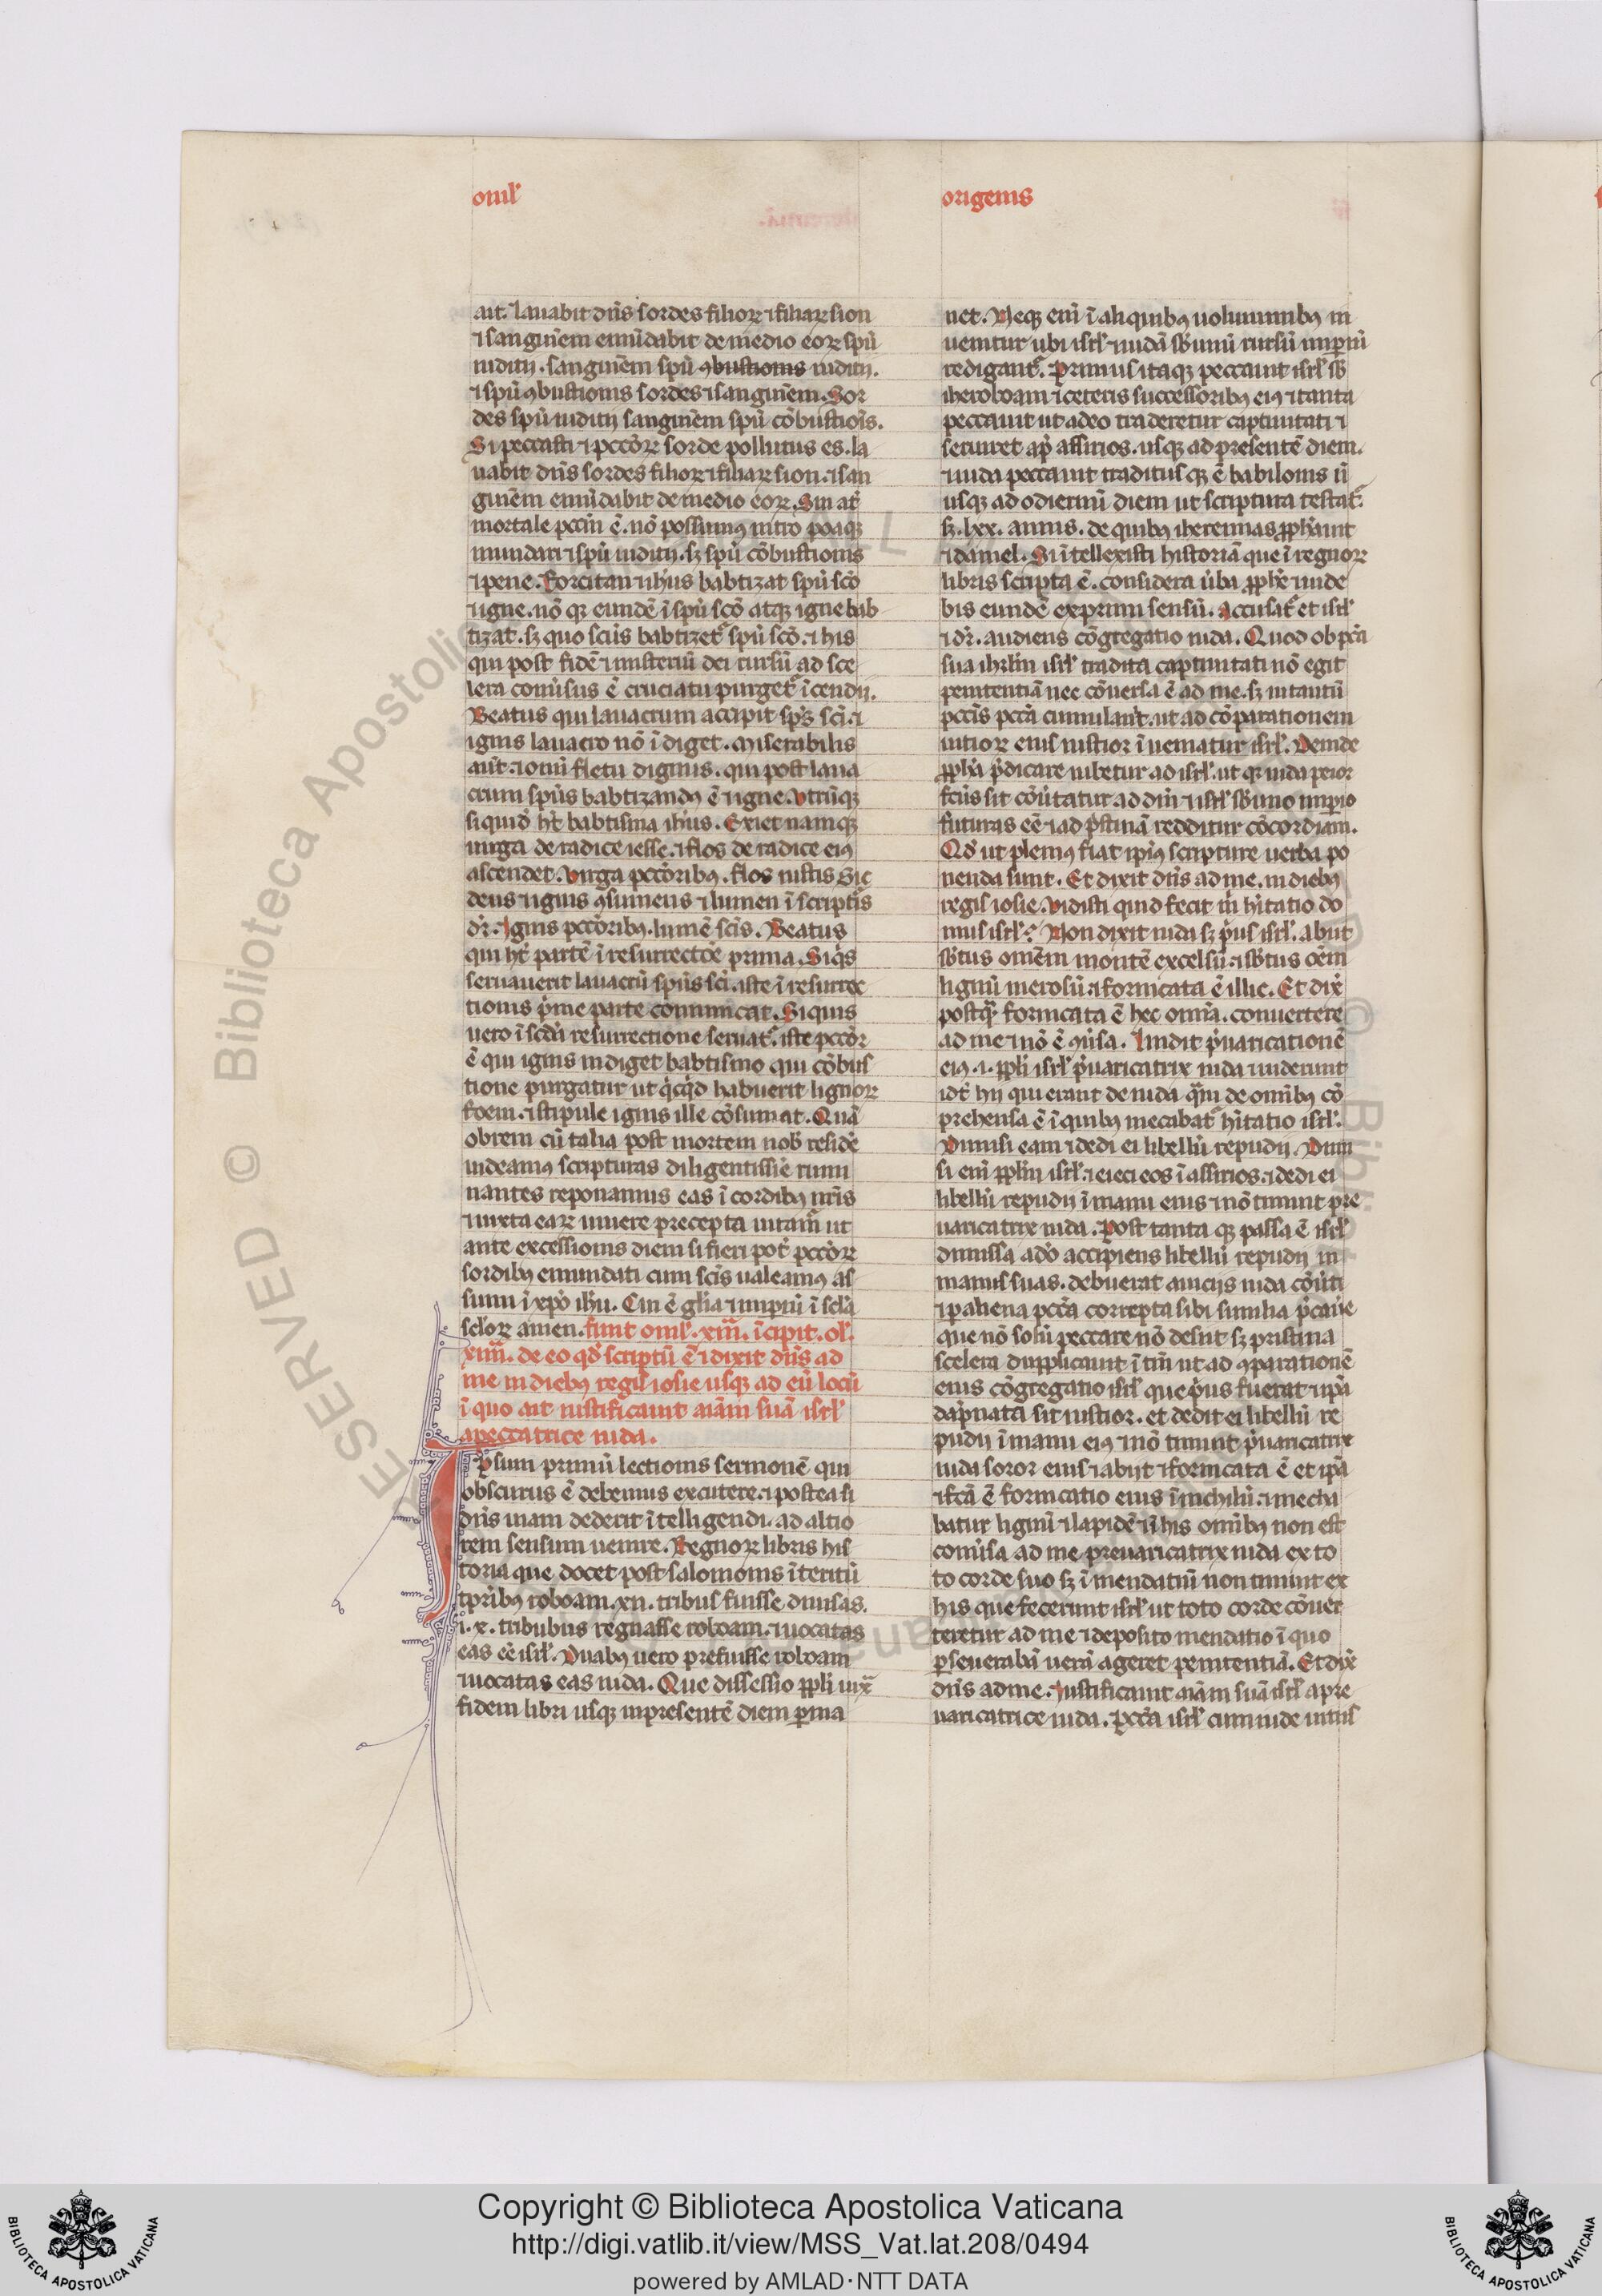 omel᷑
origenis
ait. lauabit dn̄s sordes filioꝝ ⁊ filiaꝝ sion
⁊ sanguinem emūdabit de medio eoꝝ spū
iudicij. sanguinem spū ꝯbustionis iudicij.
⁊ spū ꝯbustionis sordes ⁊ sanguinem. Sor
des spū iudicij sanguinem spū cōbustiōis.
Si peccasti ⁊ pccōꝝ sorde pollutus es. la
uabit dn̄s sordes filioꝝ ⁊ filiaꝝ sion. ⁊ san
guinem emūdabit de medio eoꝝ. Sin at̄
mortale pccm̄ ē. nō possumꝰ nitro poaqꝫ
mundari ⁊ spū iudicij. sꝫ spū cōbustionis
⁊ pene. Forcitan ⁊ ih̄us babtizat spū scō
⁊ igne. nō qꝫ eundē ī spū scō atqꝫ igne bab
tizat. sꝫ quo scūs babtizet᷑ spū scō. ⁊ his
qui post fidē ⁊ misteriū dei rursū ad sce
lera conūsus ē cruciatu purget᷑ īcendij.
Beatus qui lauacrum accipit sp̄s sci. ⁊
ignis lauacro nō īdiget. Miserabilis
aut̄. ⁊ om̄i fletu dignus. qui post laua
crum sp̄us babtizandꝰ ē ⁊ igne. Utrūqꝫ
si quid̄ ht̄ babtisma ih̄us. Exiet namqꝫ
uirga de radice iesse. ⁊ flos de radice eiꝰ
ascendet. Uirga pccōribꝫ. flos iustis Sic
deus ⁊ ignis ꝯsumens ⁊ lumen ī scriptis
dr̄. Ignis pccōribꝫ. lumē scīs. Beatus
qui ht̄ partē ī resurrectōe prima. Siq̄s
seruauerit lauacrū sp̄us sci. iste ī resurrec
tionis p̄me parte communicat. Si quis
uero ī scd̄a resurrectione seruat᷑. iste pccōr
ē qui ignis indiget babtismo qui cōbus
tione purgatur ut q̄cq̄d habuerit lignoꝝ
foeni. ⁊ stipule ignis ille cōsumat. Quā
obrem cū talia post mortem nob̄ resid̄e
uideamꝰ scripturas diligentissīe rumi
nantes reponamus eas ī cordibꝫ nr̄is
⁊ iuxta eaꝝ uiuere precepta nitam᷑ ut
ante excessionis diem si fieri pot̄ pccōꝝ
sordibꝫ emundati cum scīs ualeamꝰ as
sumi ī xp̄o ih̄u. Cui ē gl̄ia ⁊ imp̄iū ī scl̄a
scl̄oꝝ amen. finit omel᷑. xiii. īcipit. ol᷑.
xiiii. de eo qd̄ scriptū ē ⁊ dixit dn̄s ad
me in diebꝫ regis iosie usqꝫ ad eū locū
ī quo ait iustificauit aīam suā isrl᷑
apeccatrice iuda.
Ipsum primū lectionis sermonē qui
obscurus ē debemus excutere. ⁊ postea si
dn̄s uiam dederit ītelligendi. ad altio
rem sensum uenire. Regnoꝝ libris his
toria que docet post salomonis īteritū
tp̄ribꝫ roboam. xii. tribus fuisse diuisas.
⁊. x. tribubus regnasse roboam. ⁊ uocatas
eas eē isrl᷑. Duabꝫ uero prefuisse roboam
⁊ uocatas eas iuda. Que dissessio ppl̄i iux̄
fidem libri usqꝫ inpresentē diem ꝑma
net. Neqꝫ eni ī aliquibꝫ uoluminibꝫ in
uenitur ubi isrl᷑ ⁊ iudā sb̄unū rursū imꝑiū
redigant᷑. Primus itaqꝫ peccauit isrl᷑ sb̄
iheroboam ⁊ ceteris successoribꝫ eiꝰ ⁊ tanta
peccauit ut adeo traderetur captiuitati ⁊
seruiret ap̄ assirios. usqꝫ ad presentē diem.
⁊ iuda peccauit traditusqꝫ ē babilonis ū
usqꝫ ad odiernū diem ut scriptura testat᷑.
sꝫ. lxx. annis. de quibꝫ iheremias ꝓph̄auit
⁊ daniel. Si ītellexisti historiā que ī regnoꝝ
libris scripta ē. considera ūba ꝓph̄e ⁊ uide
bis eundē exprimi sensū. Accusat᷑ et isrl᷑
⁊ dr̄. audiens cōgregatio iuda. Quod ob pccā
sua ih̄rlm̄ isrl᷑ tradita captiuitati nō egit
penitentiā nec cōuersa ē ad me. sꝫ in tantū
pccīs pccā cumulaūt. ut ad cōparationem
uitioꝝ eius iustior īueniatur isrl᷑. Deinde
ꝓph̄a p̄dicare iubetur ad isrl᷑. ut qꝫ iuda peior
fcūs sit cōūtatur ad dm̄ ⁊ isrl᷑ sb̄ uno imꝑio
futuras eē ⁊ ad p̄stinā redditur cōcordiam.
Qd̄ ut pleniꝰ fiat ipiꝰ scripture uerba po
nenda sunt. Et dixit dn̄s ad me. in diebꝫ
regis iosie. Uidisti quid fecit m̄ hītatio do
mus isrl᷑? Non dixit iuda sꝫ p̄us isrl᷑. abiit
sb̄tus omēm montē excelsū. ⁊ sb̄tus oēm
lignū nerosū. ⁊ fornicata ē illic. Et dix̄
postq̄ fornicata ē hec omīa. conuertere
ad me ⁊ nō ē ꝯūsa. Uidit p̄uaricationē
eiꝰ. ⁊. ppl̄i isrl᷑ p̄uaricatrix iuda uiderunt
idt̄ hij qui erant de iuda q̄m de omībꝫ cō
prehensa ē ī quibꝫ mecabat᷑ hītatio isrl᷑.
Dimisi eam ⁊ dedi ei libellū repudij. Dimi
si eni ppl̄m isrl᷑. ⁊ eieci eos ī assirios. ⁊ dedi ei
libellū repudij ī manu eius ⁊ nō timuit pre
uaricatrix iuda. Post tanta qꝫ passa ē isrl᷑
dimissa ad̄o accipiens libellū repudij in
manus suas. debuerat amicijs iuda cōūti
⁊ ꝑ aliena pccā correpta sibi similia p̄cauē
que nō solū peccare nō desiit sꝫ pristina
scelera dupplicauit ī tm̄ ut ad ꝯparationē
eius cōgregatio isrl᷑ que p̄us fuerat ⁊ ip̄a
dapnata sit iustior. et dedit ei libellū re
pudij ī manu eiꝰ ⁊ nō timuit p̄uaricatrix
iuda soror eius ⁊ abijt ⁊ fornicata ē et ip̄a
⁊ fcā ē fornicatio eius ī nichilū. ⁊ mecha
batur lignū ⁊ lapidē ⁊ ī his omībꝫ non est
conūsa ad me preuaricatrix iuda ex to
to corde suo sꝫ ī mendatiū non timuit ex
his que fecerunt isrl᷑ ut toto corde cōuer
teretur ad me ⁊ deposito mendatio ī quo
ꝑseuerabā uerā ageret penitentiā. Et dix̄
dn̄s ad me. Iustificauit aīam suā isrl᷑ apre
uaricatrice iuda. Pccā isrl᷑ cum iude uitijs
Copyright © Biblioteca Apostolica Vaticana
http://digi.vatlib.it/view/MSS_Vat.lat.208/0494
powered by AMLAD·NTT DATA
BIBLIOTECA APOSTOLICA VATICANA
BIBLIOTECA APOSTOLICA VATICANA